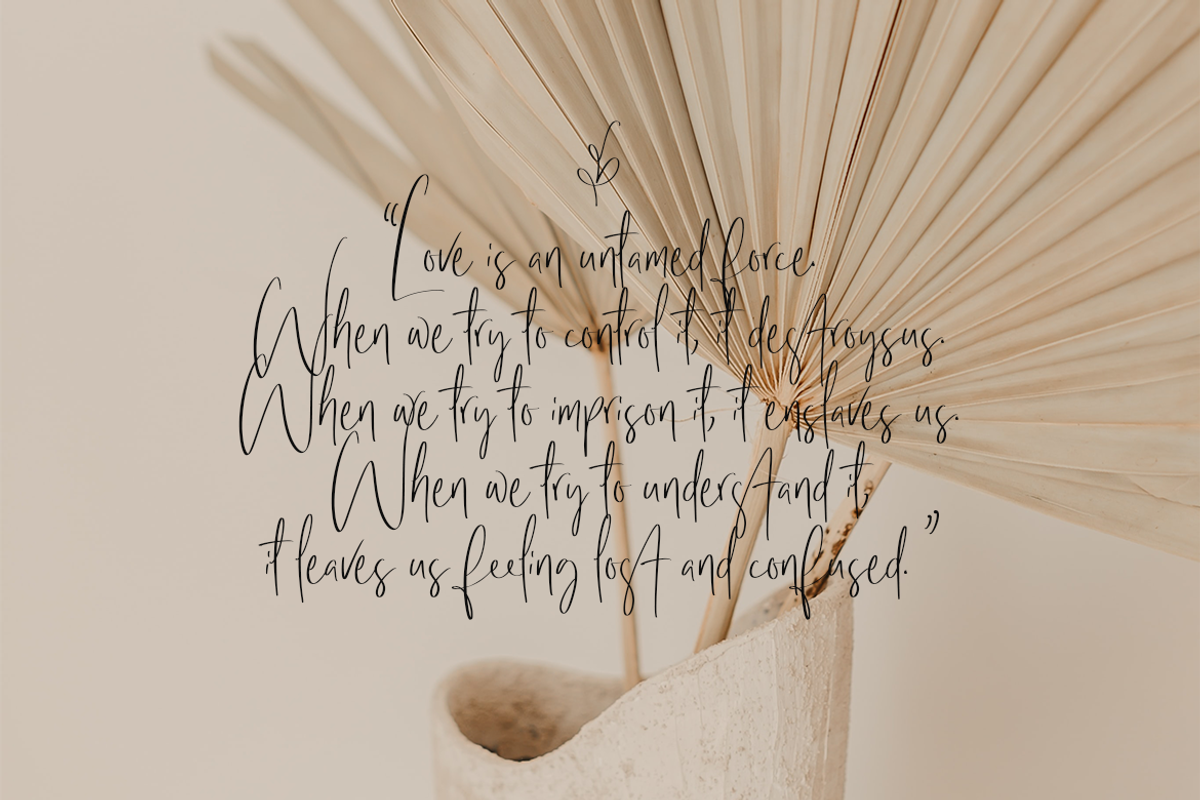 “Love is an untamed force.
When we try to control it, it destroys us.
When we try to imprison it, it enslaves us.
When we try to understand it,
it leaves us feeling lost and confused.”